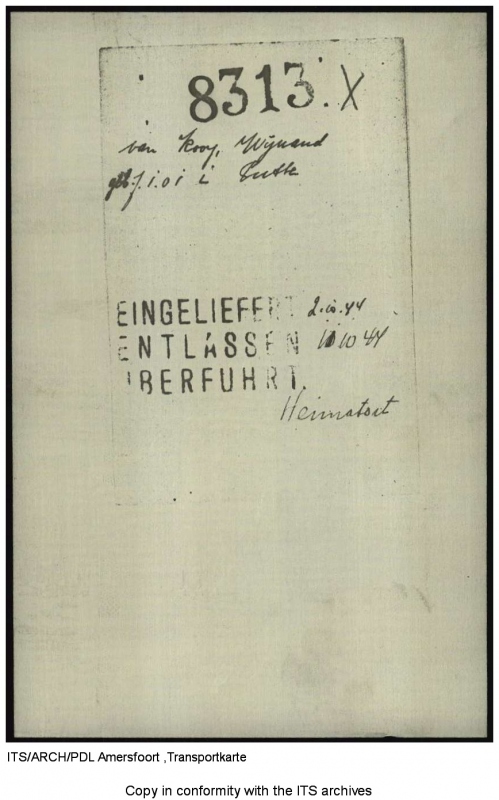 8313. X
van Kooy, Wijnand
geb. 7.1.01 i Putte
EINGELIEFERT 2.10.44
ENTLASSEN 10 10 44
ÜBERFÜHRT.
Heimatort
ITS/ARCH/PDL Amersfoort ,Transportkarte
Copy in conformity with the ITS archives